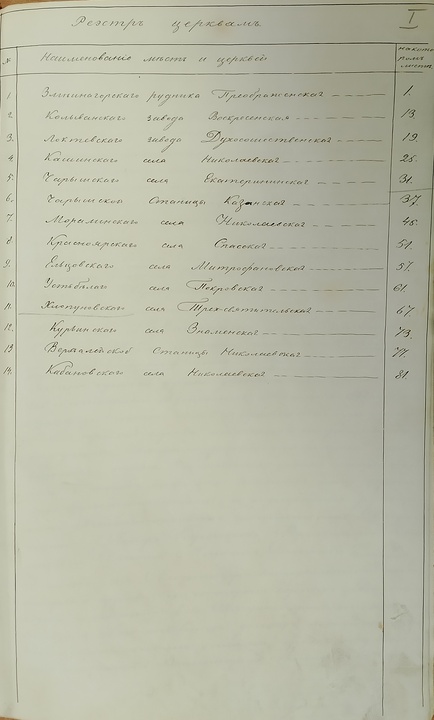 Реэстръ церквамъ. I
№ Наименованiе мѣстъ и церквей на кото ромъ листѣ
1. Змѣиногорскаго рудника Преображенская 1.
2. Колыванскаго завода Воскресенская 13
3. Локтевскаго завода Духосошественская 19.
4. Кашинскаго села Николаевская 25.
5. Чарышскаго села Екатерининская 31.
6. Чарышской Станицы Казанская 37.
7. Моралихинскаго села Николаевская 45.
8. Красноярскаго села Спасская 51.
9. Ельцовскаго села Митрофановская 57.
10. Устьбѣлаго села Покровская 61.
11. Хлопуновскаго села Трехсвятительская 67.
12. Курьинскаго села Знаменская 73.
13. Верхалейской Станицы Николаевская 77.
14. Кабановскаго села Николаевская 81.